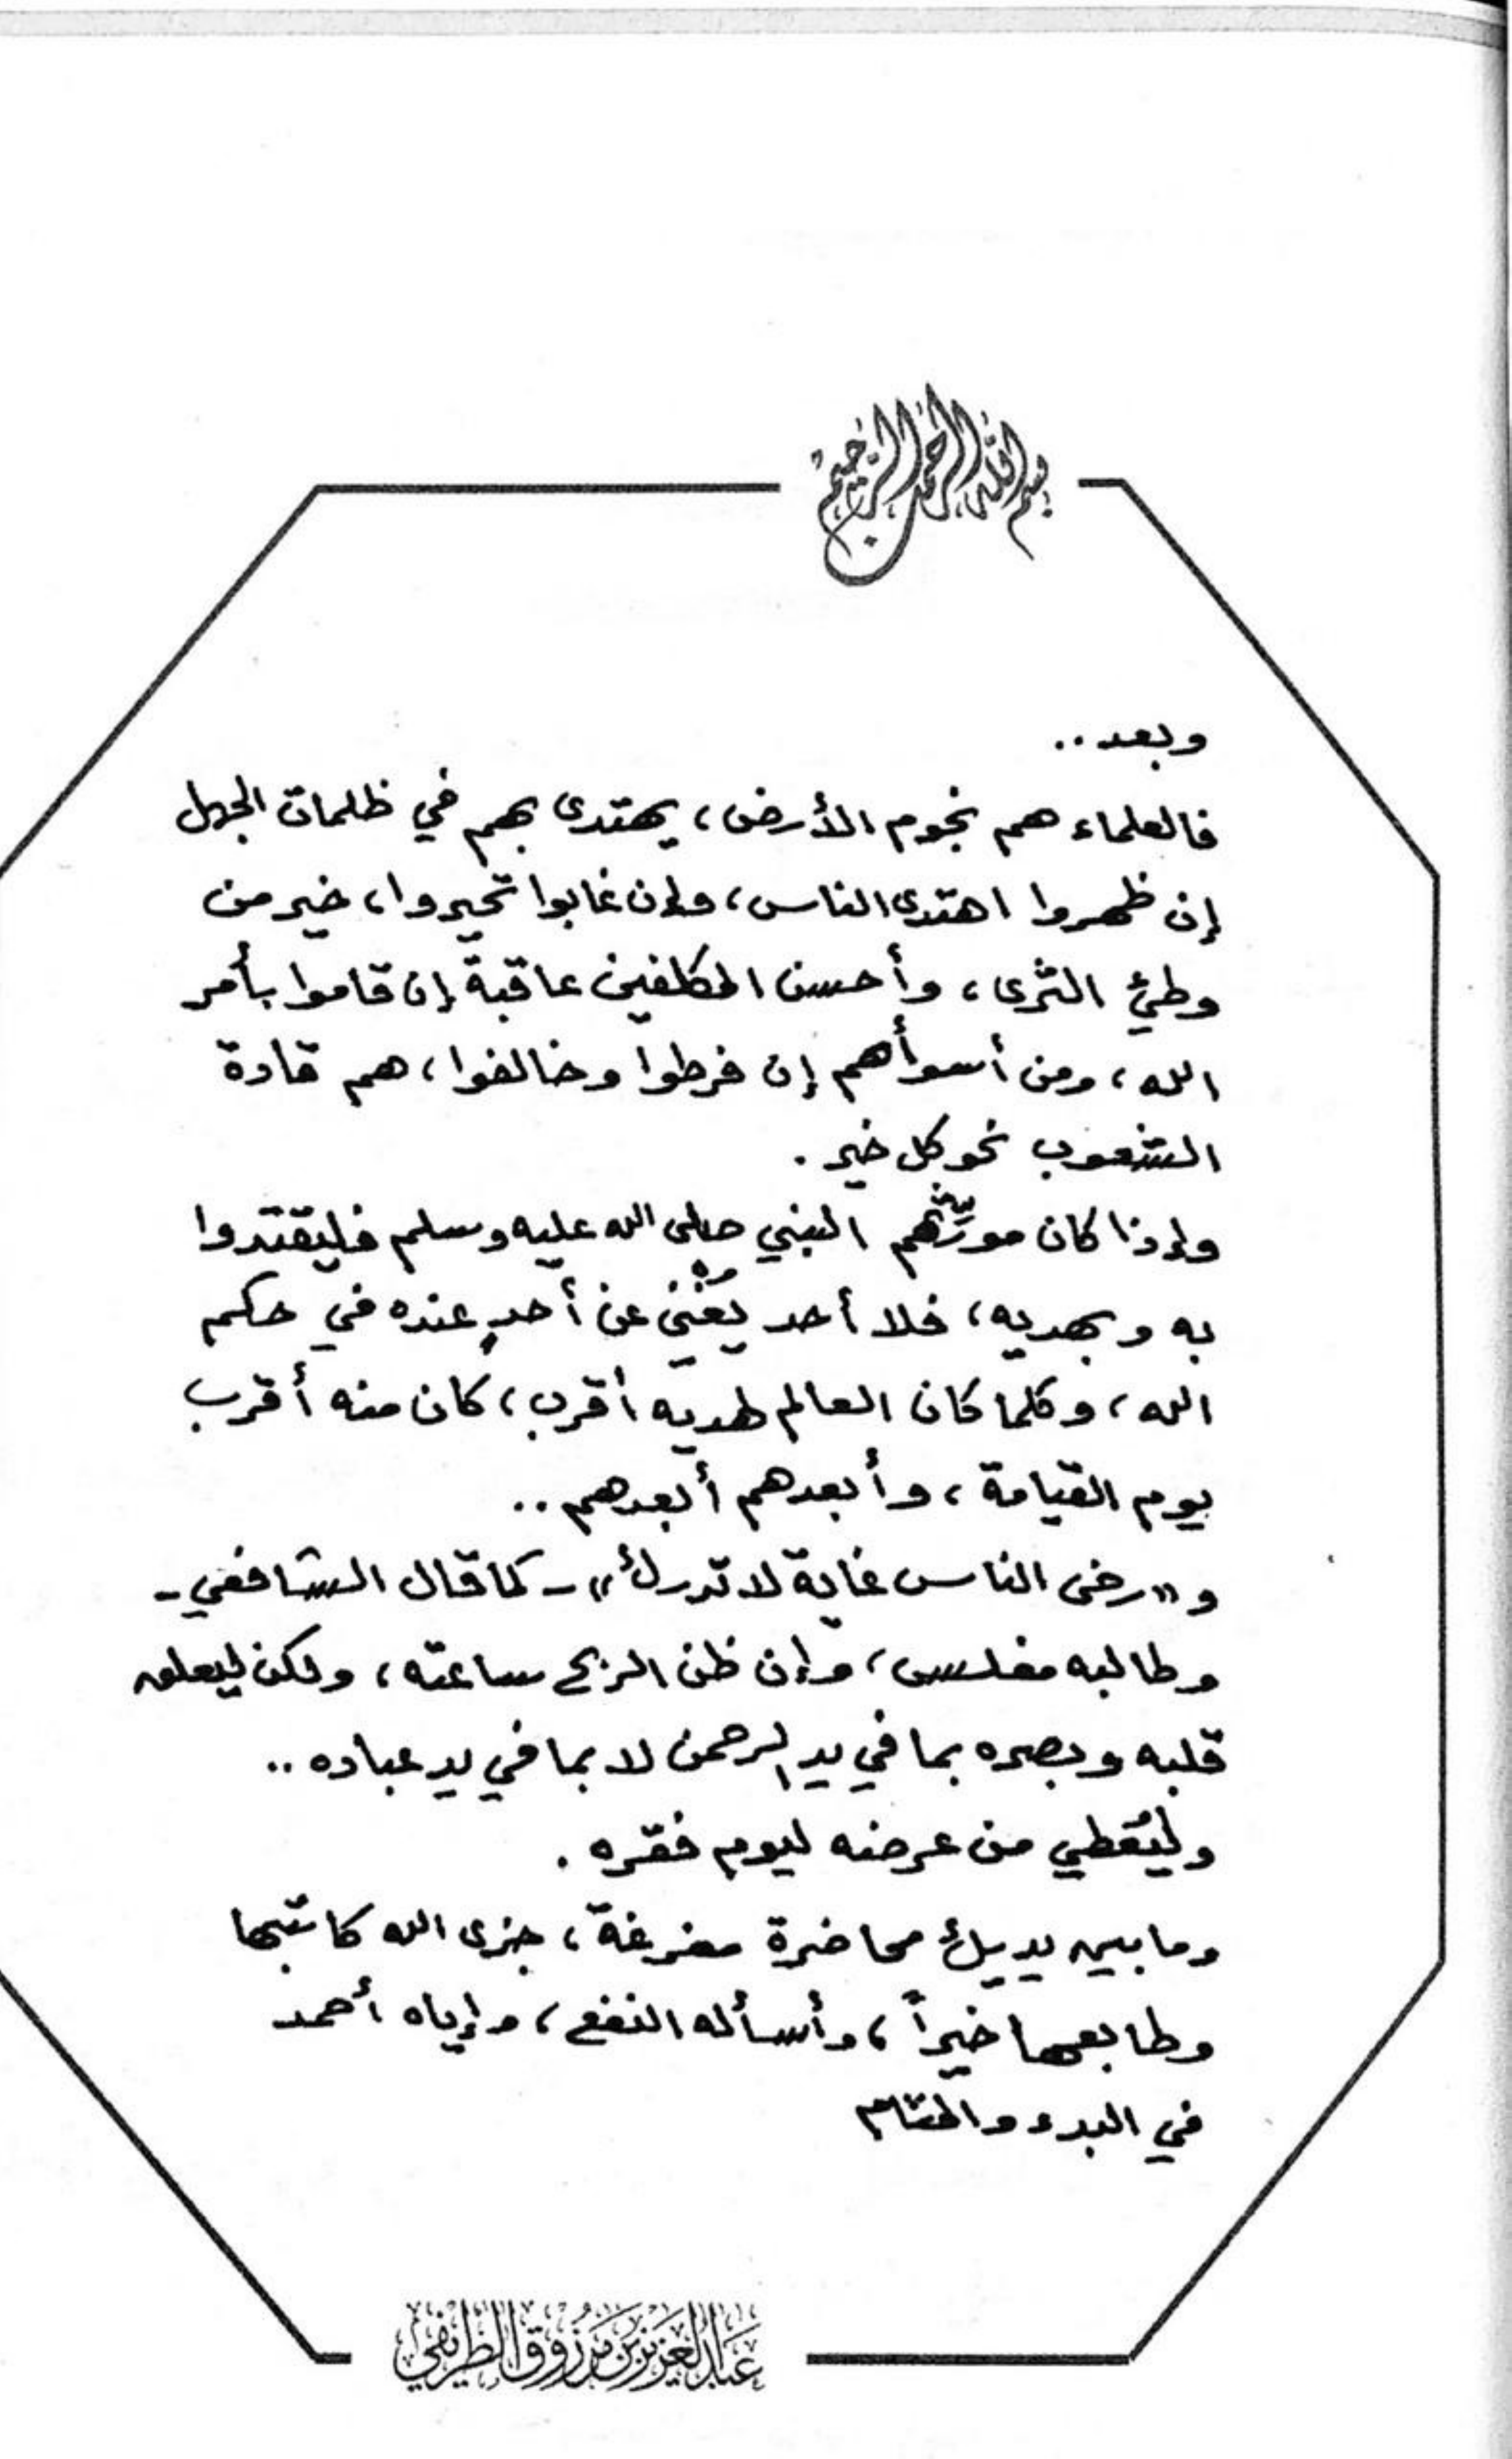 بسم الله الرحمن الرحيم
وبعد..
فالعلماء هم نجوم الأرض، يهتدى بهم في ظلمات الجهل
إن ظهروا اهتدى الناس، وإن غابوا تحيروا، خير من
وطئ الثرى، وأحسن المكلفين عاقبةً إن قاموا بأمر
الله، ومن أسوأهم إن فرطوا وخالفوا، هم قادة
الشعوب نحو كل خير.
وإذا كان مورِّثهم النبي صلى الله عليه وسلم فليقتدوا
به وبهديه، فلا أحد يُغْني عن أحدٍ عنده في حكم
الله، وكلما كان العالم لهديه أقرب، كان منه أقرب
يوم القيامة، وأبعدهم أبعدهم..
و«رضى الناس غاية لا تدرك» - كما قال الشافعي -
وطالبه مفلس، وإن ظن الربح ساعته، ولكن ليعلق
قلبه وبصره بما في يد الرحمن لا بما في يد عباده..
وليُعطي من عرضه ليوم فقره.
وما بين يديك محاضرة مفرغة، جزى الله كاتبها
وطابعها خيراً، وأسأله النفع، وإياه أحمد
في البدء والختام
عبد العزيز بن مرزوق الطريفي